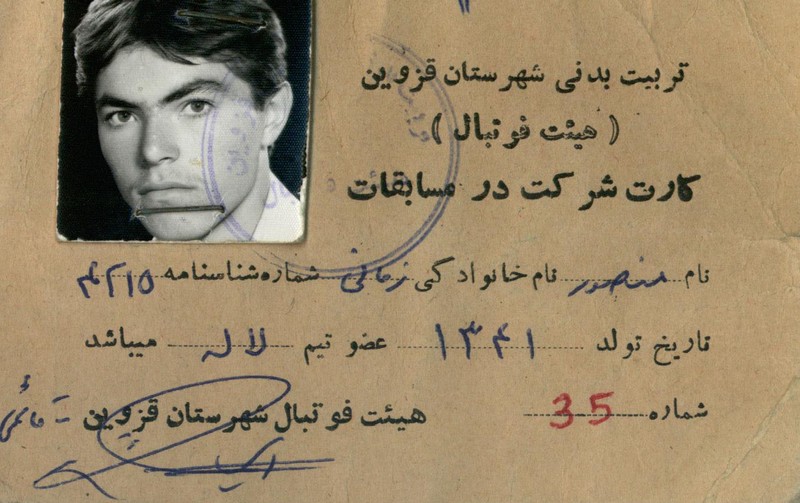 تربیت بدنی شهرستان قزوین
( هیئت فوتبال )
کارت شرکت در مسابقات
نام منصور نام خانوادگی زمانی شماره شناسنامه
تاریخ تولد ۱۳۴۱ عضو تیم لاله میباشد
شماره 35 هیئت فوتبال شهرستان قزوین